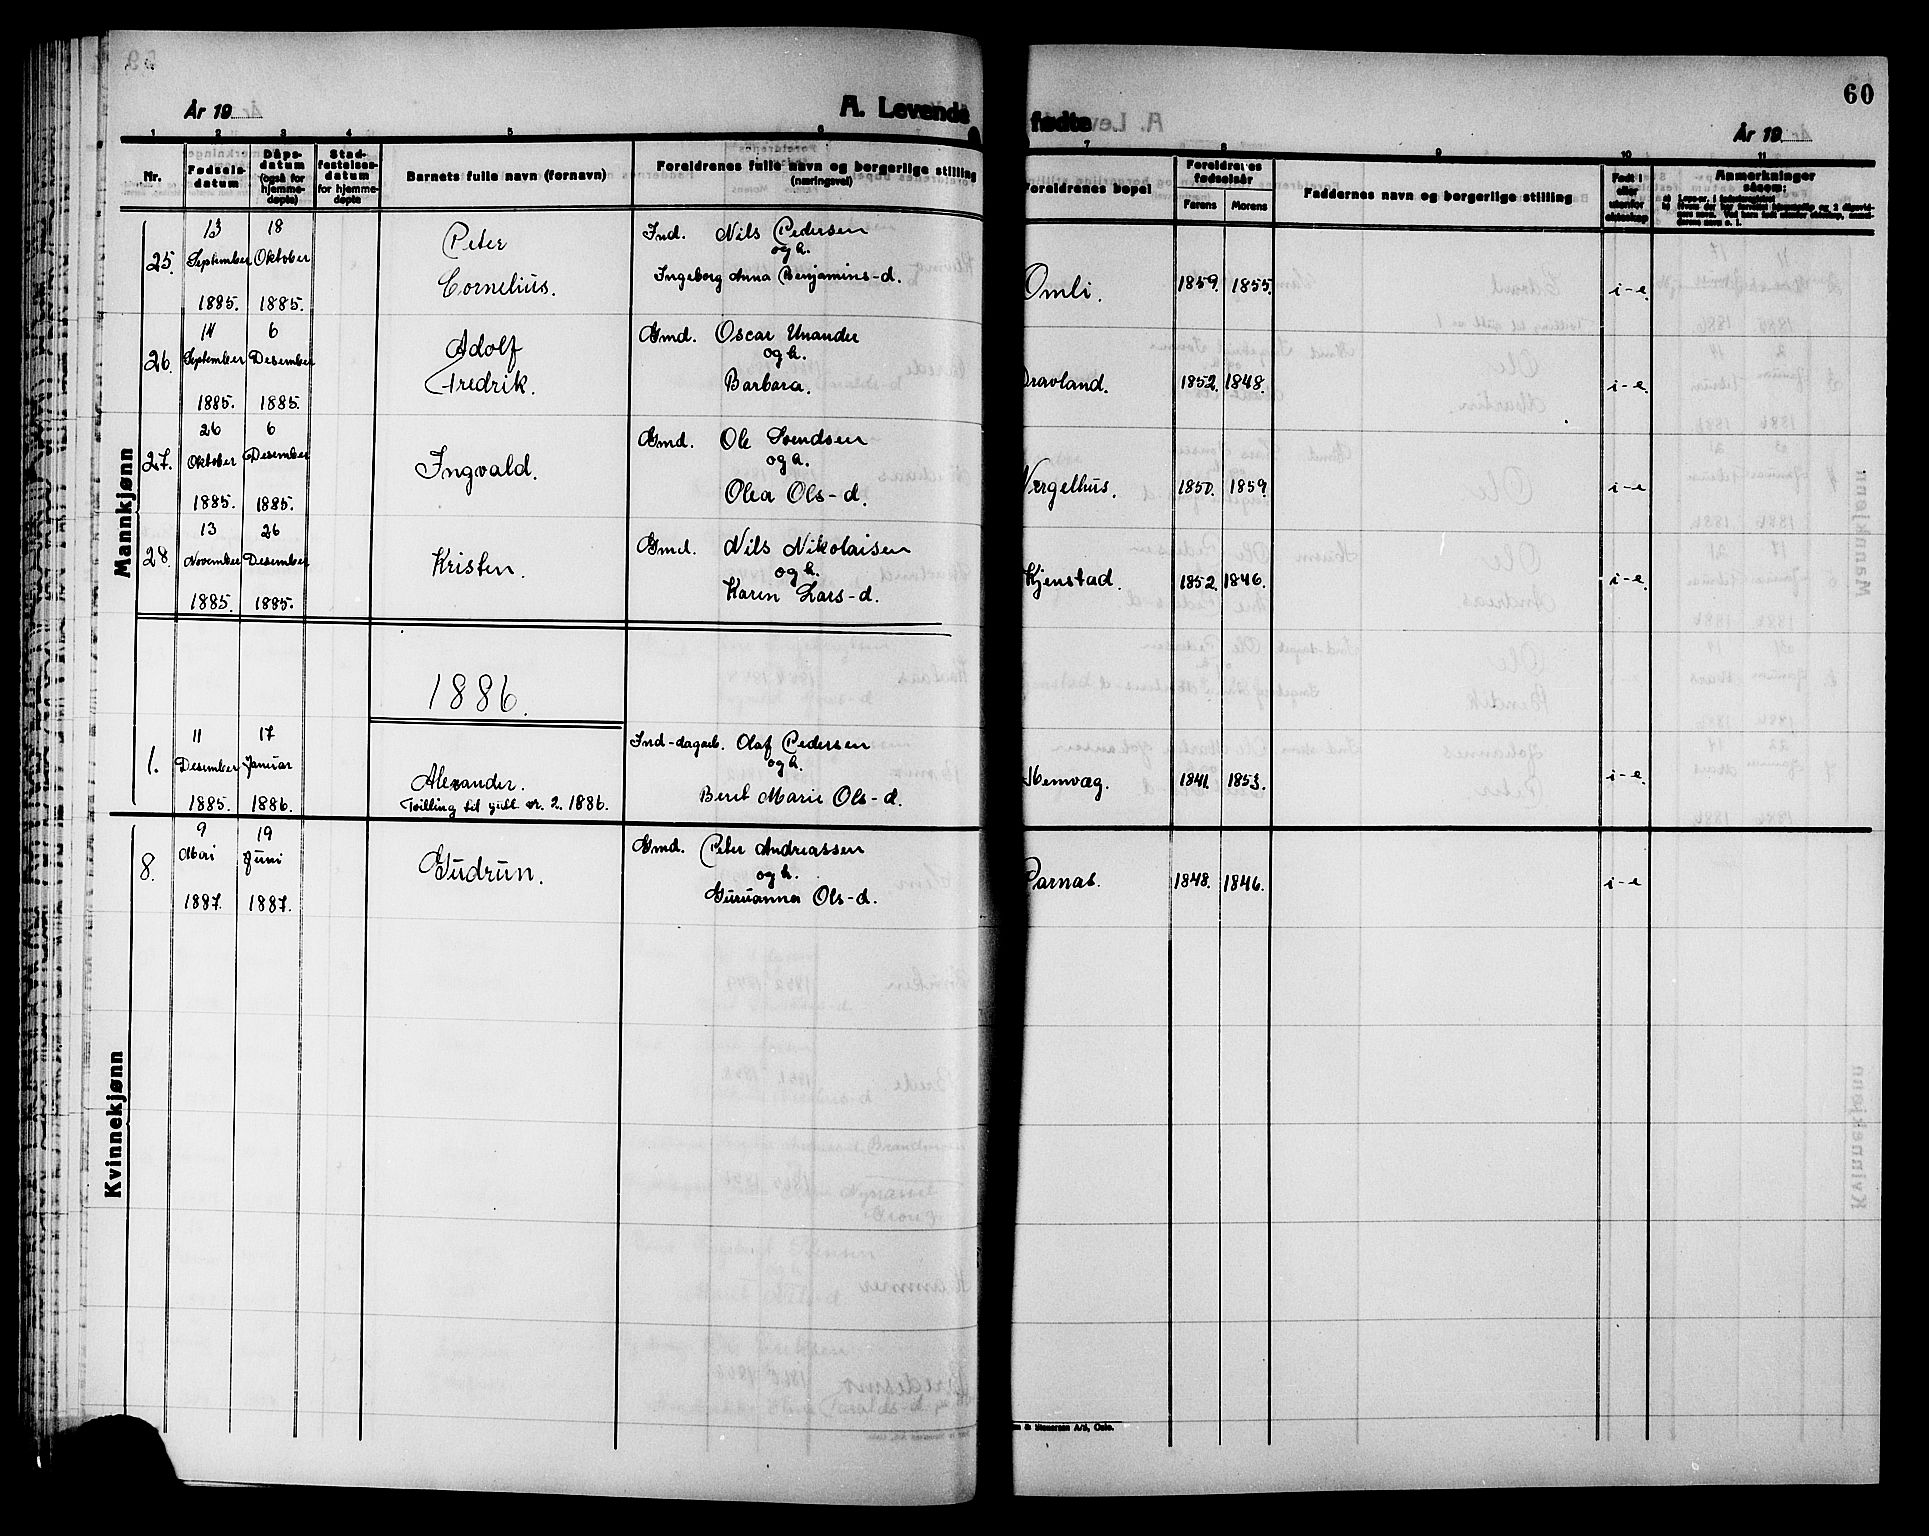 60
År 19
A. Levende fødte
År 19
1 2 3 4 5 6 7 8 9 10 11
Nr.
Fødsels-
datum
Dåps-
datum
(også for
hjemme-
døpte)
Stad-
festelses-
datum
for hjemme-
døpte
Barnets fulle navn (fornavn)
Foreldrenes fulle navn og borgerlige stilling
(næringsvei)
Foreldrenes bopel
Foreldrenes
fødselsår
Farens
Morens
Faddernes navn og borgerlige stilling
Født i
eller
utenfor
ekteskap
Anmerkninger
såsom:
Mannkjønn
25. 13 September 1885. 18 Oktober 1885. Peter Cornelius. Ind. Nils Pedersen
og h.
Ingeborg Anna Benjamins-d. Omli. 1859. 1855. i-e.
26. 14 September 1885. 6 Desember 1885. Adolf Fredrik. Gmd. Oscar Unander
og h.
Barbara. Dravland. 1852. 1848. i-e.
27. 26 Oktober 1885. 6 Desember 1885. Ingvald. Gmd. Ole Svendsen
og h.
Olea Ols-d. 1850. 1859. i-e
28. 13 November 1885. 26 Desember 1885. Kristen. Gmd. Nils Nikolaisen
og h.
Karen Lars-d. Kjenstad. 1852. 1846. i-e.
1886.
1. 11 Desember 1885. 17 Januar 1886. Alexander.
Tvilling til gutt nr. 2. 1886.
Ind-dagarb. Olaf Pedersen
og h.
Berit Marie Ols-d. 1841. 1853. i-e.
Kvinnekjønn
8. 9 Mai 1887. 19 Juni 1887. Gudrun. Gmd. Peter Andreassen
og h.
Guruanna Ols-d. Parnas. 1848. 1846. i-e
& Stenersen A/S, Oslo.